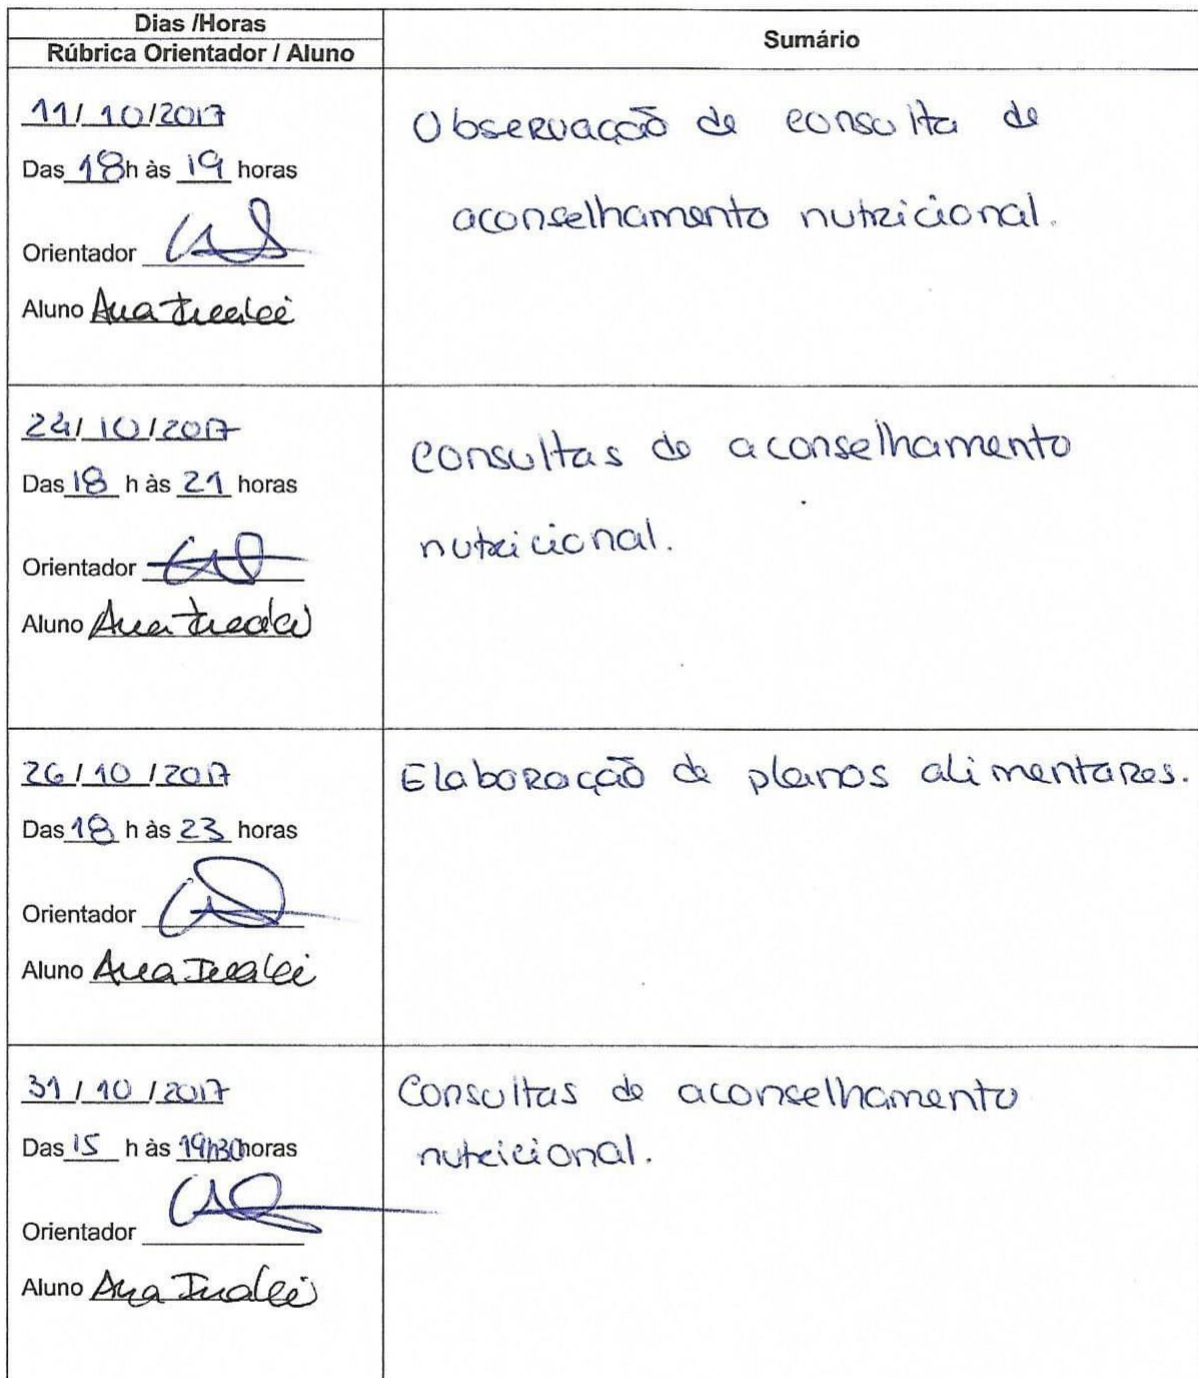 Dias /Horas
Rúbrica Orientador / Aluno
Sumário
11/10/2017
Das 18h às 19 horas
Orientador
Aluno Ana
Observação de consulta de
aconselhamento nutricional.
24/10/2017
Das 18 h às 21 horas
Orientador
Aluno Ana
consultas de aconselhamento
nutricional.
26/10/2017
Das 18 h às 23 horas
Orientador
Aluno Ana
Elaboração de planos alimentares.
31/10/2017
Das 15 h às 19h30horas
Orientador
Aluno Ana
Consultas de aconselhamento
nutricional.